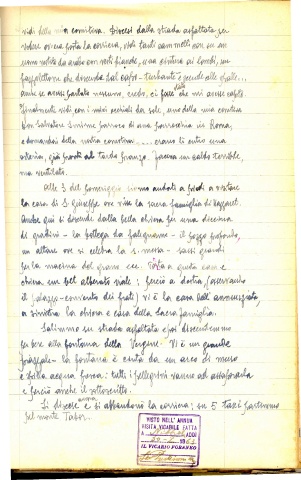 vidi della mia comitiva. Discesi dalla strada asfaltata per
vedere ov'era ferma la corriera, vidi tanti cammelli con su un
uomo vestito da arabo con veste bianche, una cintura ai lombi, un
fazzolettone che discendeva dal capo - turbante e scende alle spalle...
anche se avessi parlato nessuno, credo, ci fosse stato che mi avesse capito.
Finalmente vidi con i miei occhiali da sole, uno della mia comitiva
Don Salvatore parroco di una parrocchia in Roma,
e domandai della nostra comitiva ..... erano lì entro una
osteria, già pronti al tardo pranzo. Faceva un caldo terribile,
ma ventilato.
Alle 3 del pomeriggio siamo andati a piedi a visitare
la casa di S. Giuseppe ove visse la sacra famiglia di Nazaret.
Anche qui si discende dalla bella chiesa per una decina
di gradini - la bottega da falegname - il pozzo profondo,
un altare ove si celebra la S. messa - sassi grandi
per la macina del grano ecc. Tutta a questa casa e
chiesa un bel alberato viale: perciò a destra (osservando
il palazzo-convento dei frati) vi è la casa dell'annunziata,
a sinistra la chiesa e casa della Sacra famiglia.
Salimmo su strada asfaltata e poi discendemmo
per bere alla fontana della Vergine. Vi è un grande
piazzale - la fontana è cinta da un arco di muro
e butta acqua fresca: tutti i pellegrini vanno ad assaporarla
e perciò anche il sottoscritto.
Si discese ancora e si abbandonò la corriera; su 5 taxi partimmo
pel monte Tabor..
VISTO NELL'ANNUA
VISITA VICARILE FATTA
ADDÌ
IL VICARIO FORANEO